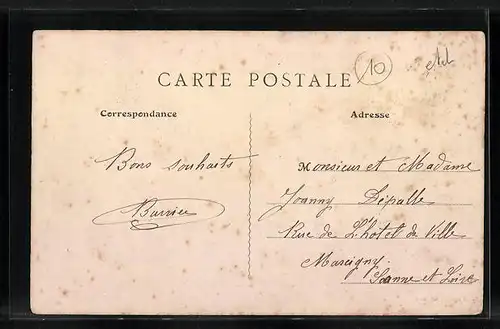 CARTE POSTALE
10
Correspondance
Adresse
Bons souhaits
Barrier
Monsieur et Madame
Joanny Dépalle
Rue de L'hôtel de Ville
Marcigny.
Saone et Loire